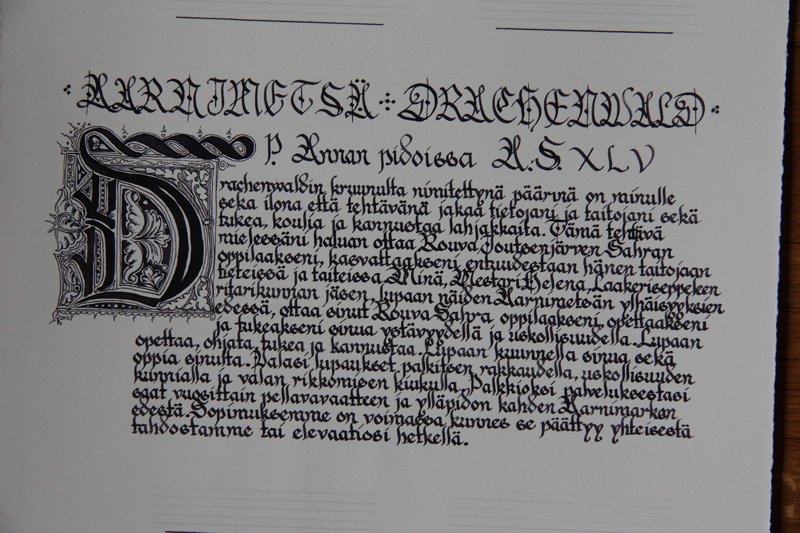 AARNIMETSÄ DRACHENWALD
P. Annan pidoissa A.S. XLV
Drachenwaldin kruunulta nimitettynä päärinä on minulle
sekä ilona että tehtävänä jakaa tietojani ja taitojani sekä
tukea, koulia ja kannustaa lahjakkaita. Tämä tehtävä
mielessäni haluan ottaa Rouva Joutsenjärven Sahran
oppilaakseni, kasvattaakseni entuudestaan hänen taitojaan
tieteissä ja taiteissa. Minä, Mestari Helena, Laakeriseppeleen
ritarikunnan jäsen, lupaan näiden Aarnimetsän ylhäisyyksien
edessä, ottaa sinut Rouva Sahra oppilaakseni, opettaakseni
ja tukeakseni sinua ystävyydellä ja uskollisuudella. Lupaan
opettaa, ohjata, tukea ja kannustaa. Lupaan kuunnella sinua sekä
oppia sinulta. Valasi lupaukset palkitsen rakkaudella, uskollisuuden
kunnialla ja valan rikkomisen kiukulla. Palkkioksi palveluksestasi
saat vuosittain pellavavaatteen ja ylläpidon kahden Aarnimarkan
edestä. Sopimuksemme on voimassa kunnes se päättyy yhteisestä
tahdostamme tai elevaatiosi hetkellä.